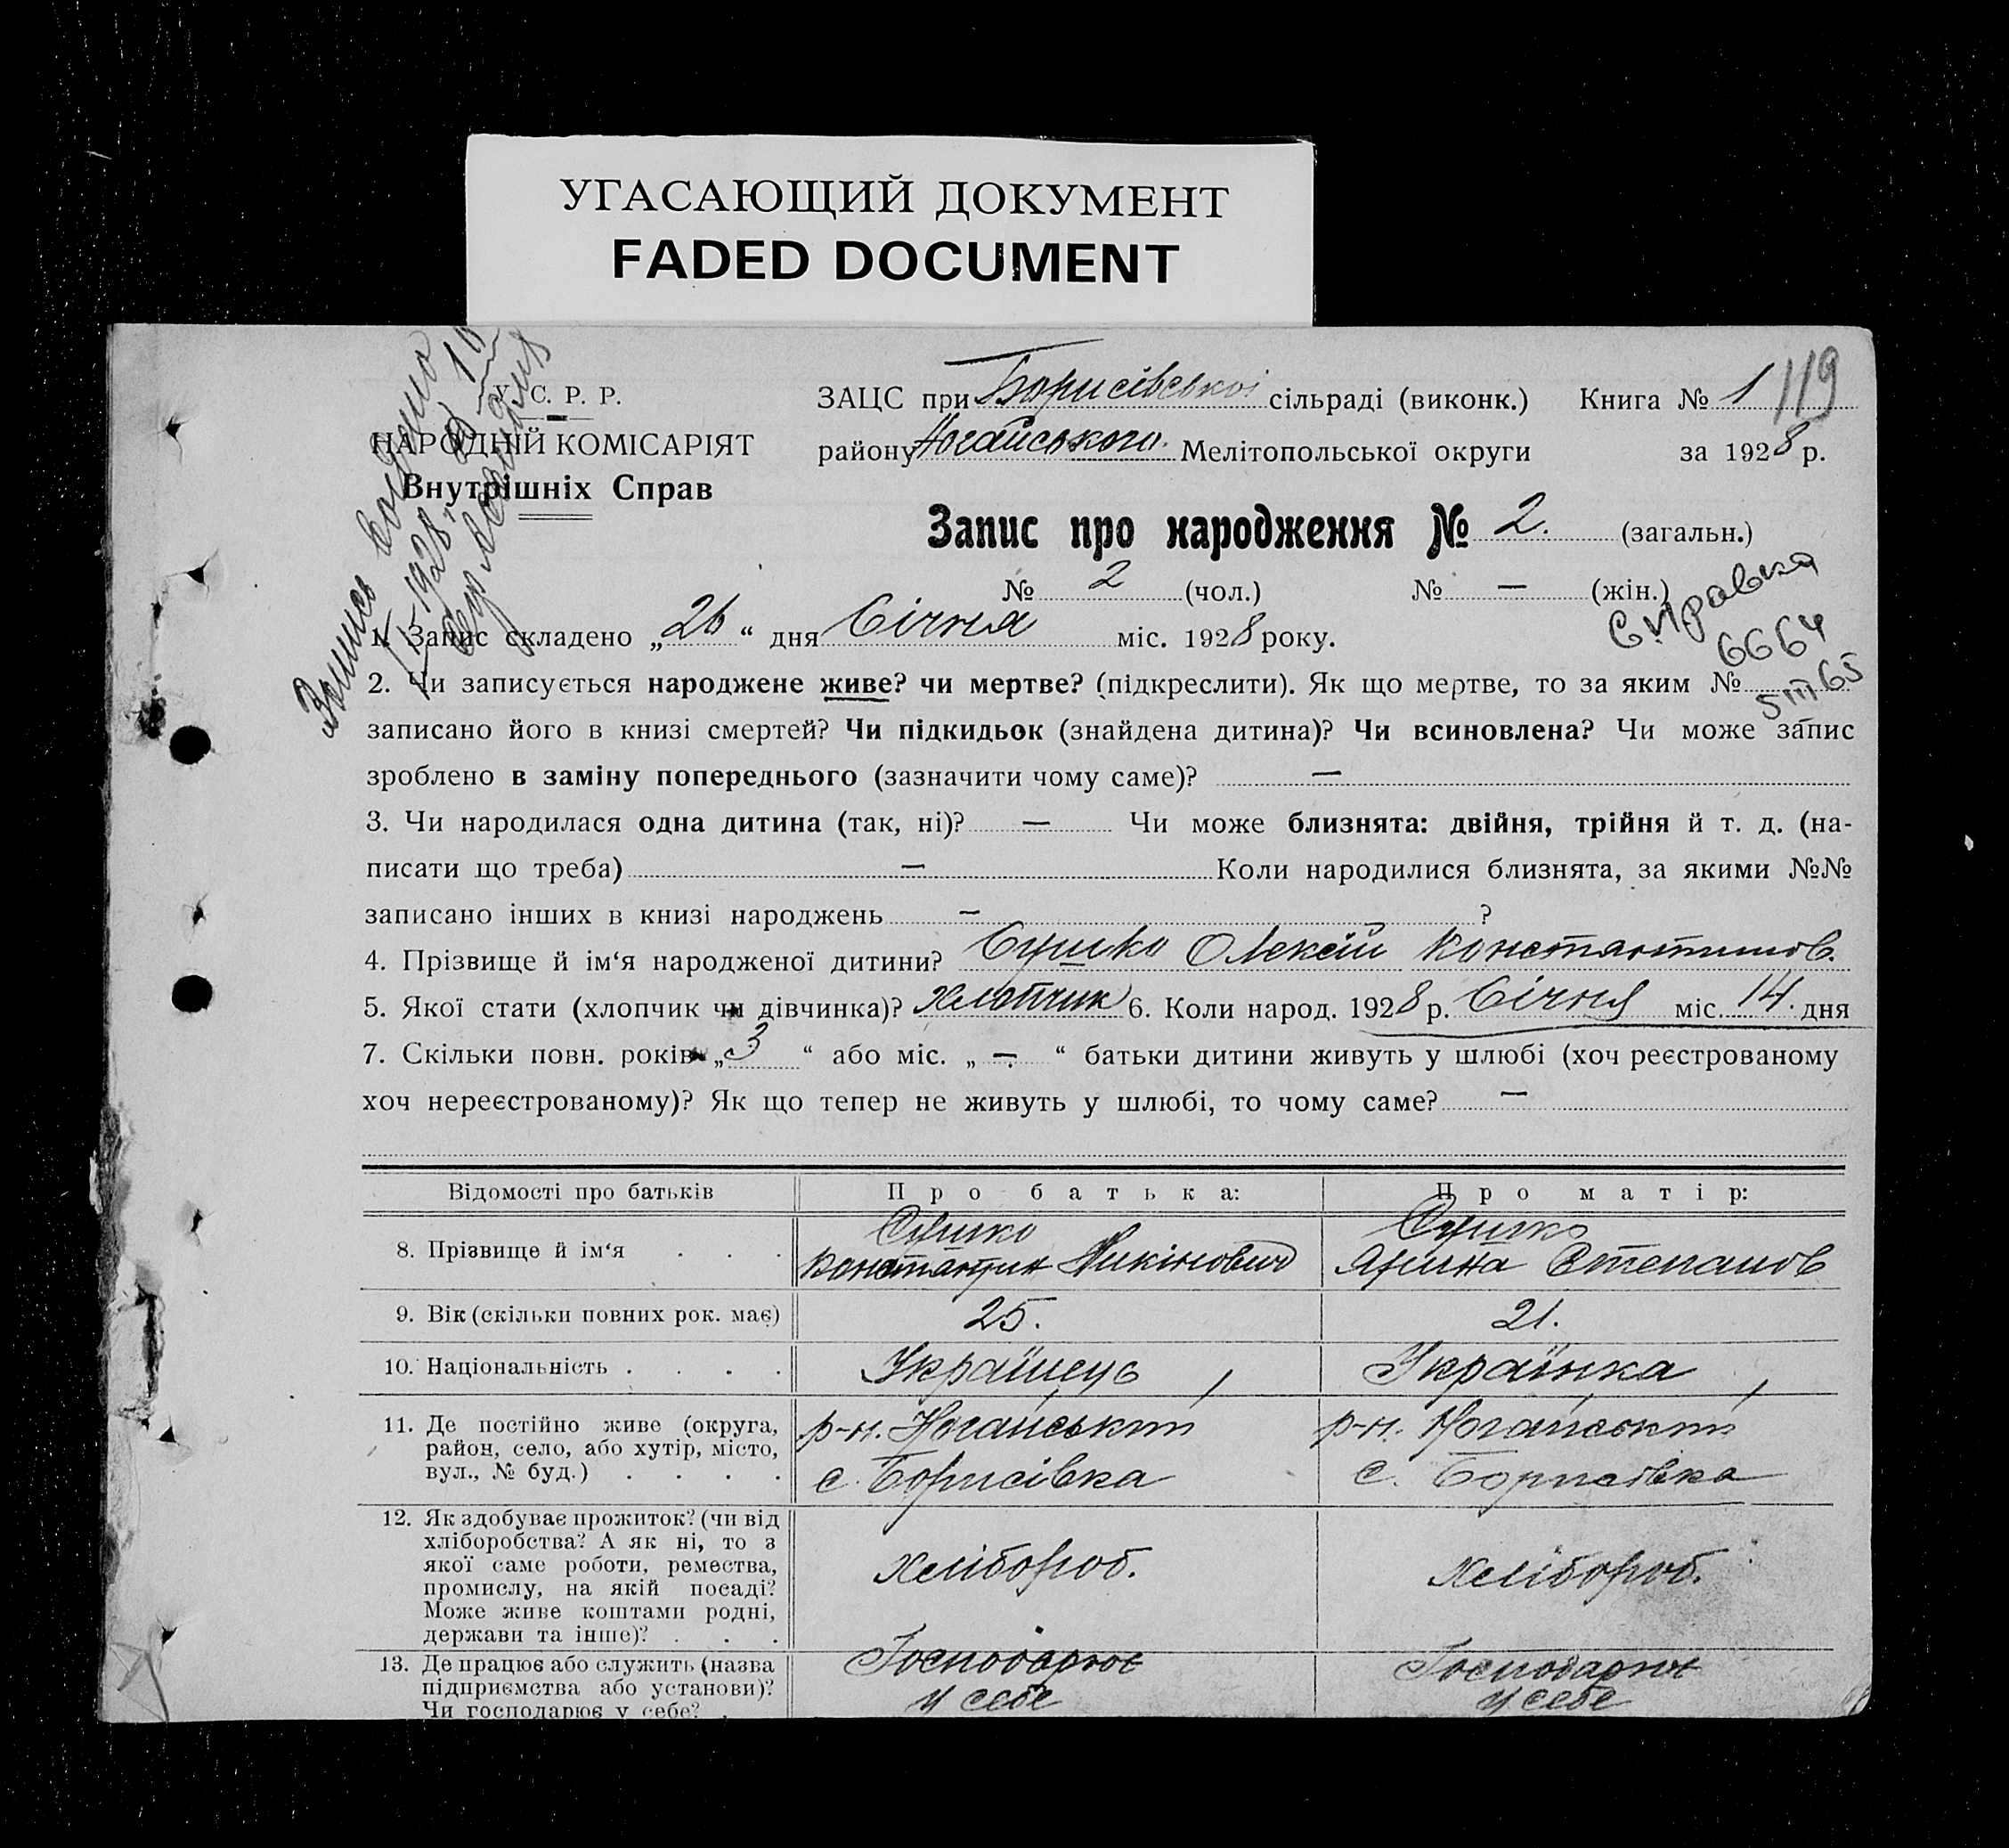 УГАСАЮЩИЙ ДОКУМЕНТ
FADED DOCUMENT
У. С. Р. Р.
НАРОДНІЙ КОМІСАРІЯТ
Внутрішніх Справ
ЗАЦС при Борисівської сільраді (виконк.) Книга № 1 119
району Ногайського Мелітопольської округи за 1928 р.
Запис про народження № 2. (загальн.)
№ 2 (чол.) № — (жін.)
Справка
6664
5 III 65
1. Запис складено „26“ дня Січня міс. 1928 року.
2. Чи записується народжене живе? чи мертве? (підкреслити). Як що мертве, то за яким №
записано його в книзі смертей? Чи підкидьок (знайдена дитина)? Чи всиновлена? Чи може запис
зроблено в заміну попереднього (зазначити чому саме)? —
3. Чи народилася одна дитина (так, ні)? — Чи може близнята: двійня, трійня й т. д. (на-
писати що треба) — Коли народилися близнята, за якими №№
записано інших в книзі народжень — ?
4. Прізвище й ім‘я народженої дитини? Сушко Олексій Константинов.
5. Якої стати (хлопчик чи дівчинка)? хлопчик 6. Коли народ. 1928 р. Січня міс. 14. дня
7. Скільки повн. років „3“ або міс. „—“ батьки дитини живуть у шлюбі (хоч реєстрованому
хоч нереєстрованому)? Як що тепер не живуть у шлюбі, то чому саме? —
Відомості про батьків Про батька: Про матір:
8. Прізвище й ім‘я . . . Сушко Константин Сушко Ярина Степанов
9. Вік (скільки повних рок. має) 25. 21.
10. Національність . . . . Українець, Українка,
11. Де постійно живе (округа, р-н. Ногайський р-н. Ногайський
район, село, або хутір, місто,
вул., № буд.) . . . . с. Борисівка с. Борисівка
12. Як здобуває прожиток? (чи від
хліборобства? А як ні, то з
якої саме роботи, ремества, хлібороб. хлібороб.
промислу, на якій посаді?
Може живе коштами родні,
держави та інше)? . . .
13. Де працює або служить (назва Господарює Господарює
підприємства або установи)? у себе у себе
Чи господарює у себе? .